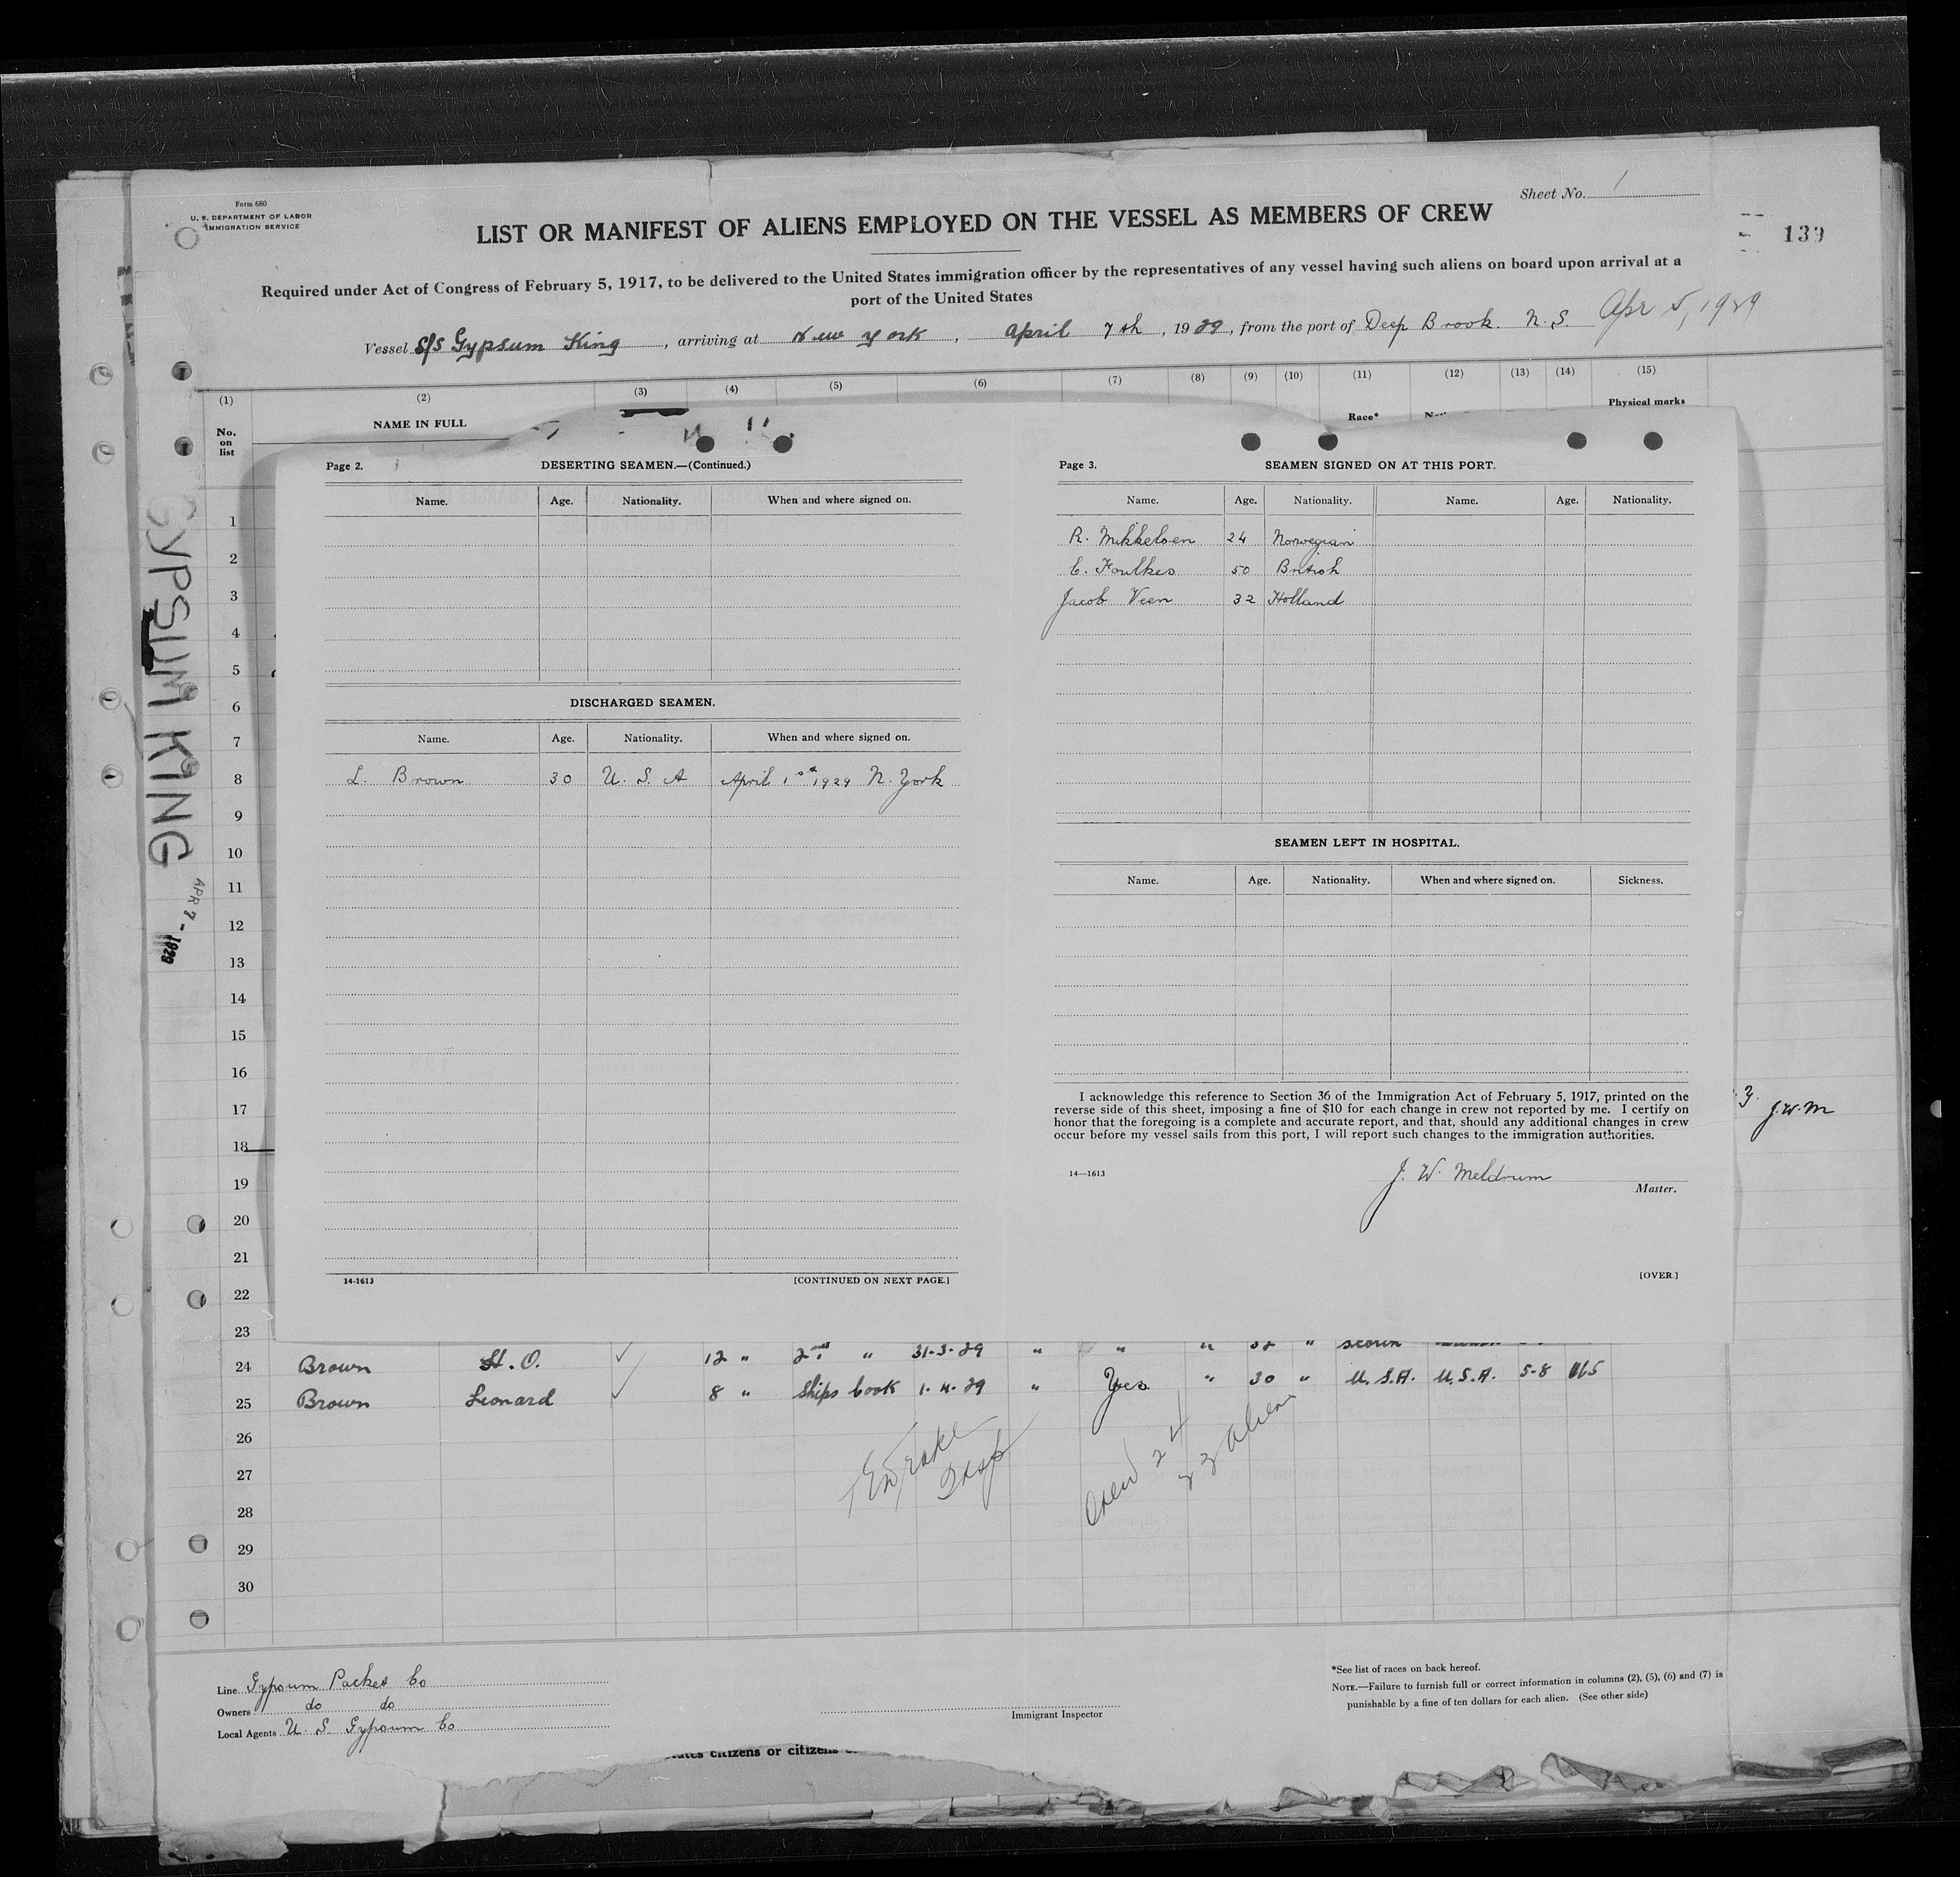 Form 680
U. S. DEPARTMENT OF LABOR
IMMIGRATION SERVICE
Sheet No. 1
LIST OR MANIFEST OF ALIENS EMPLOYED ON THE VESSEL AS MEMBERS OF CREW
139
Required under Act of Congress of February 5, 1917, to be delivered to the United States immigration officer by the representatives of any vessel having such aliens on board upon arrival at a
port of the United States
Vessel S/S Gypsum King, arriving at New York, April 7th, 1929, from the port of Deep Brook. N.S. Apr 5, 1929
(1) (2) (3) (4) (5) (6) (7) (8) (9) (10) (11) (12) (13) (14) (15)
No. on list
NAME IN FULL
Race*
Physical marks
GYPSUM KING
APR 7 - 1929
Page 2.
DESERTING SEAMEN.—(Continued.)
Name. Age. Nationality. When and where signed on.
DISCHARGED SEAMEN.
Name. Age. Nationality. When and where signed on.
L. Brown 30 U. S. A April 1st 1929 N. York
14-1613
[CONTINUED ON NEXT PAGE.]
Page 3.
SEAMEN SIGNED ON AT THIS PORT.
Name. Age. Nationality. Name. Age. Nationality.
R. Mikkelsen 24 Norwegian
C. Foulkes 50 British
Jacob Veen 32 Holland
SEAMEN LEFT IN HOSPITAL.
Name. Age. Nationality. When and where signed on. Sickness.
I acknowledge this reference to Section 36 of the Immigration Act of February 5, 1917, printed on the
reverse side of this sheet, imposing a fine of $10 for each change in crew not reported by me. I certify on
honor that the foregoing is a complete and accurate report, and that, should any additional changes in crew
occur before my vessel sails from this port, I will report such changes to the immigration authorities.
14—1613
J. W. Meldrum
Master.
[OVER.]
J.W.M
1
2
3
4
5
6
7
8
9
10
11
12
13
14
15
16
17
18
19
20
21
22
23
24 Brown H. O. ✓ 12 " 2nd " 31-3-29 " " " 32 "
25 Brown Leonard ✓ 8 " Ships book 1-4-29 " Yes " 30 " U.S.A. U.S.A. 5-8 165
26
27
28
29
30
Crew 24
23 Aliens
Line Gypsum Packet Co
Owners do do
Local Agents U. S. Gypsum Co
Immigrant Inspector
*See list of races on back hereof.
NOTE.—Failure to furnish full or correct information in columns (2), (5), (6) and (7) is
punishable by a fine of ten dollars for each alien. (See other side)
citizens or citizens